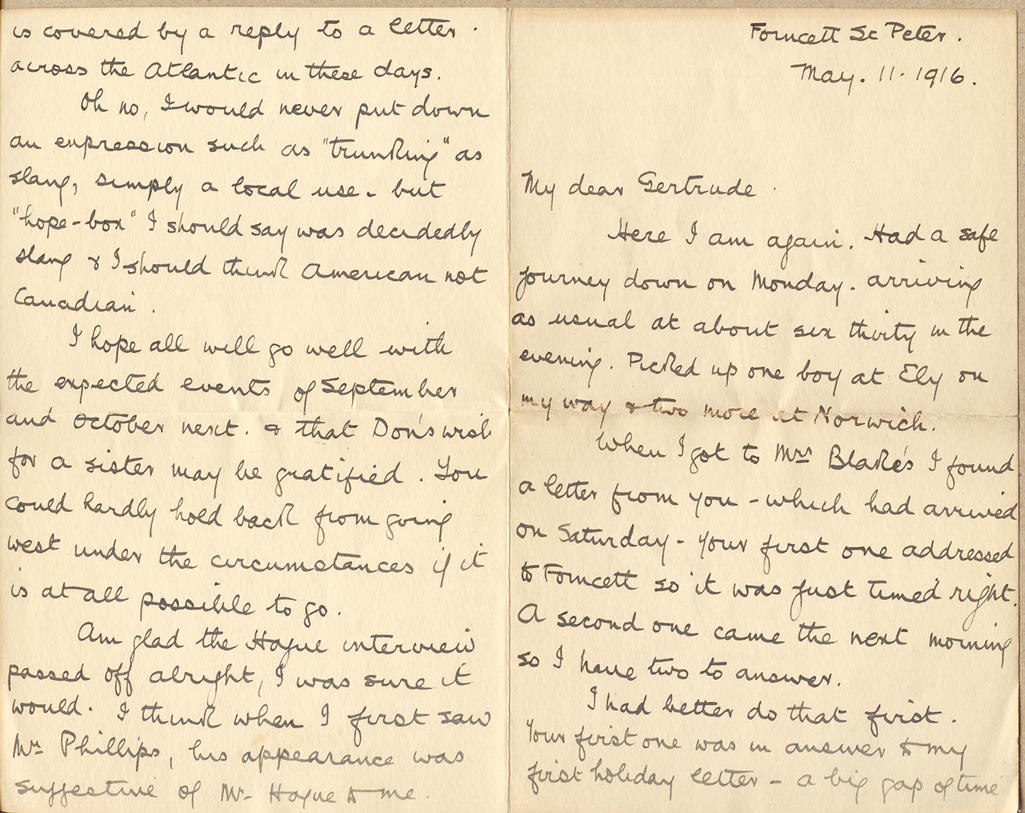 Forncett St Peter.
May. 11. 1916.
My dear Gertrude.
Here I am again. Had a safe
journey down on Monday. arriving
as usual at about six thirty in the
evening. Picked up one boy at Ely on
my way & two more at Norwich.
When I got to Mrs Blake's I found
a letter from you - which had arrived
on Saturday - your first one addressed
to Forncett so it was just timed right.
A second one came the next morning
so I have two to answer.
I had better do that first.
Your first one was in answer to my
first holiday letter - a big gap of time
is covered by a reply to a letter.
across the Atlantic in these days.
Oh no, I would never put down
an expression such as "trunking" as
slang, simply a local use - but
"hope-box" I should say was decidedly
slang & I should think American not
Canadian.
I hope all will go well with
the expected events of September
and October next. & that Don's wish
for a sister may be gratified. You
could hardly hold back from going
west under the circumstances if it
is at all possible to go.
Am glad the Hague interview
passed off alright, I was sure it
would. I think when I first saw
Mr Phillips, his appearance was
suggestive of Mr Hague to me.